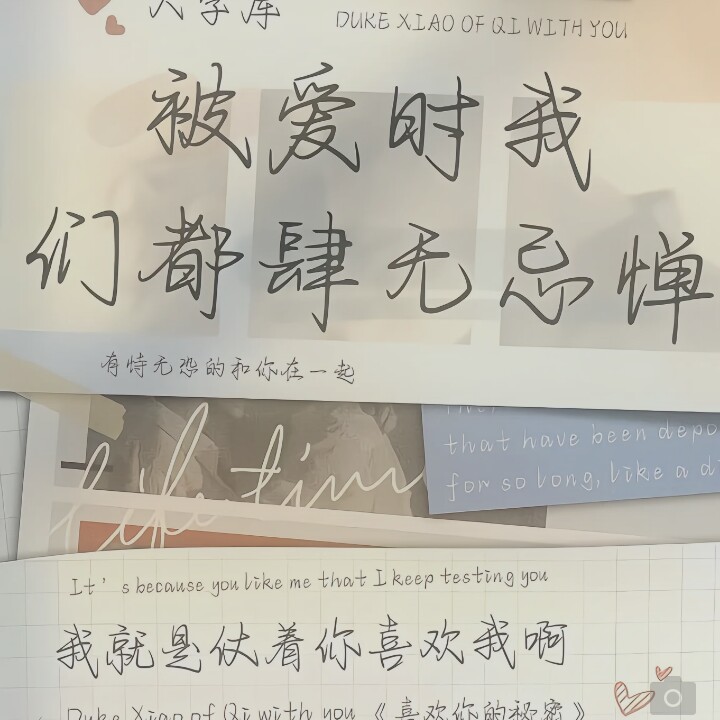 大字库
DUKE XIAO OF QI WITH YOU
被爱时我
们都肆无忌惮
有恃无恐的和你在一起
Life time
that have been depo
for so long, like a d
It's because you like me that I keep testing you
我就是仗着你喜欢我啊
Duke Xiao of Qi with you 《喜欢你的秘密》